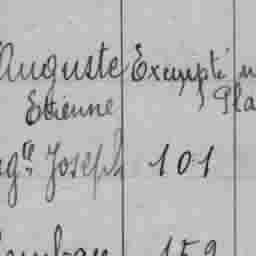 Auguste Exempté
Etienne Pla
Joseph 101
159